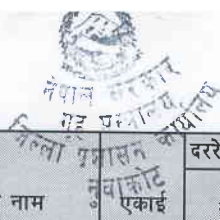 नेपाल सरकार
गृह मन्त्रालय
जिल्ला प्रशासन कार्यालय
नुवाकोट
दररे
नाम
एकाई